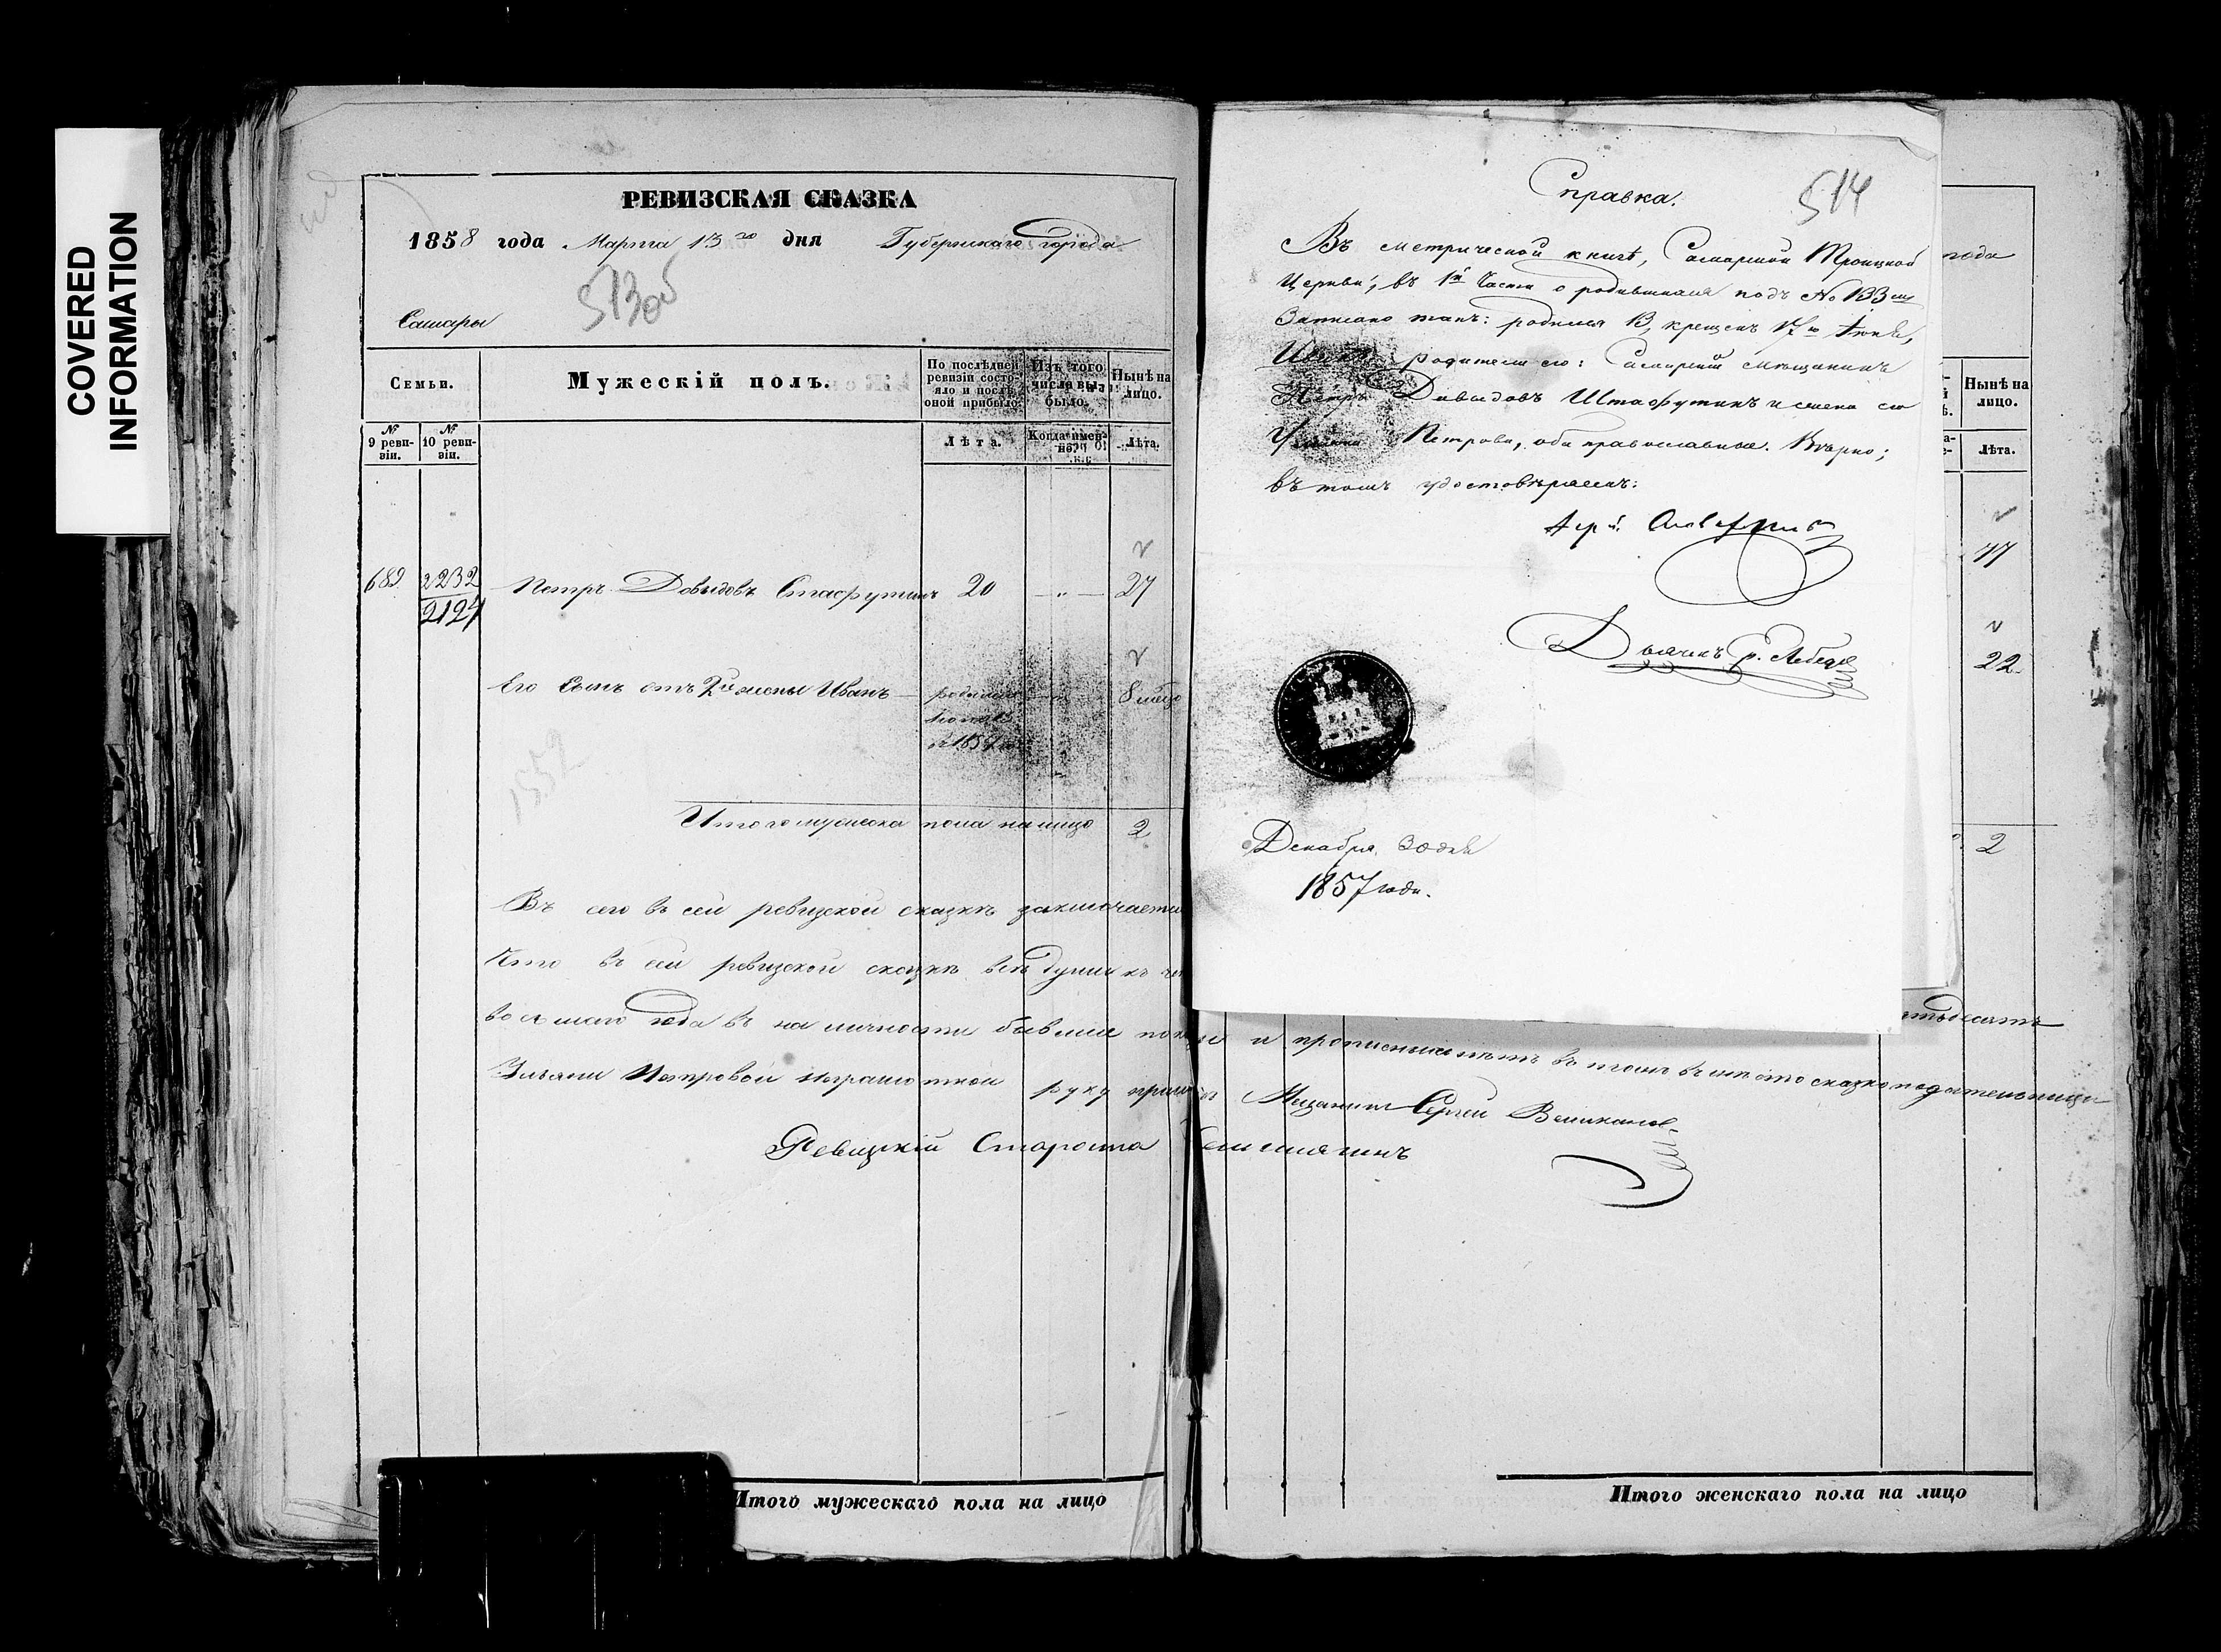 COVERED
INFORMATION
РЕВИЗСКАЯ СКАЗКА
1858 года Марта 13го дня Губернскаго города
513об
Самары
Семьи.
Мужескій полъ.
По послѣдней ревизіи состояло и послѣ оной прибыло.
Изъ того числа выбыло.
Нынѣ на лицо.
№ 9 ревизіи.
№ 10 ревизіи.
Лѣта.
Когда именно.
Лѣта.
689 2232 Петръ Давыдовъ Стафутинъ 20 — „ — 27
2124
Его Сынъ отъ 2й жены Иванъ — родился 8 мѣс
1857
1552
Итого мужеска пола налицо 2
Въ сего въ сей ревизской сказкѣ заключается
Что въ сей ревизской сказкѣ всѣ души къ
восьмаго года въ наличности бывшие и прописныхъ нѣтъ въ томъ вместо сказкоподательницы
Ульяны Петровой неграмотной руку приложилъ Мещанинъ Сергей Великановъ
Ревизкій Староста
Итого мужескаго пола на лицо
Справка.
514
Въ метрической книгѣ, Самарской Троицкой
Церкви, въ 1й Части о родившихся подъ № 133
Записано такъ: родился 13, крещенъ 17го Іюня,
Иванъ родители его: Самарскій мѣщанинъ
Петръ Давыдовъ Штафутинъ и жена его
Ульяна Петрова, оба православные. Вѣрно;
въ томъ удостовѣряемъ:
Декабря 30 дня
1857 года.
года
Нынѣ на лицо.
Лѣта.
47
22
2
пятьдесятъ
Итого женскаго пола на лицо